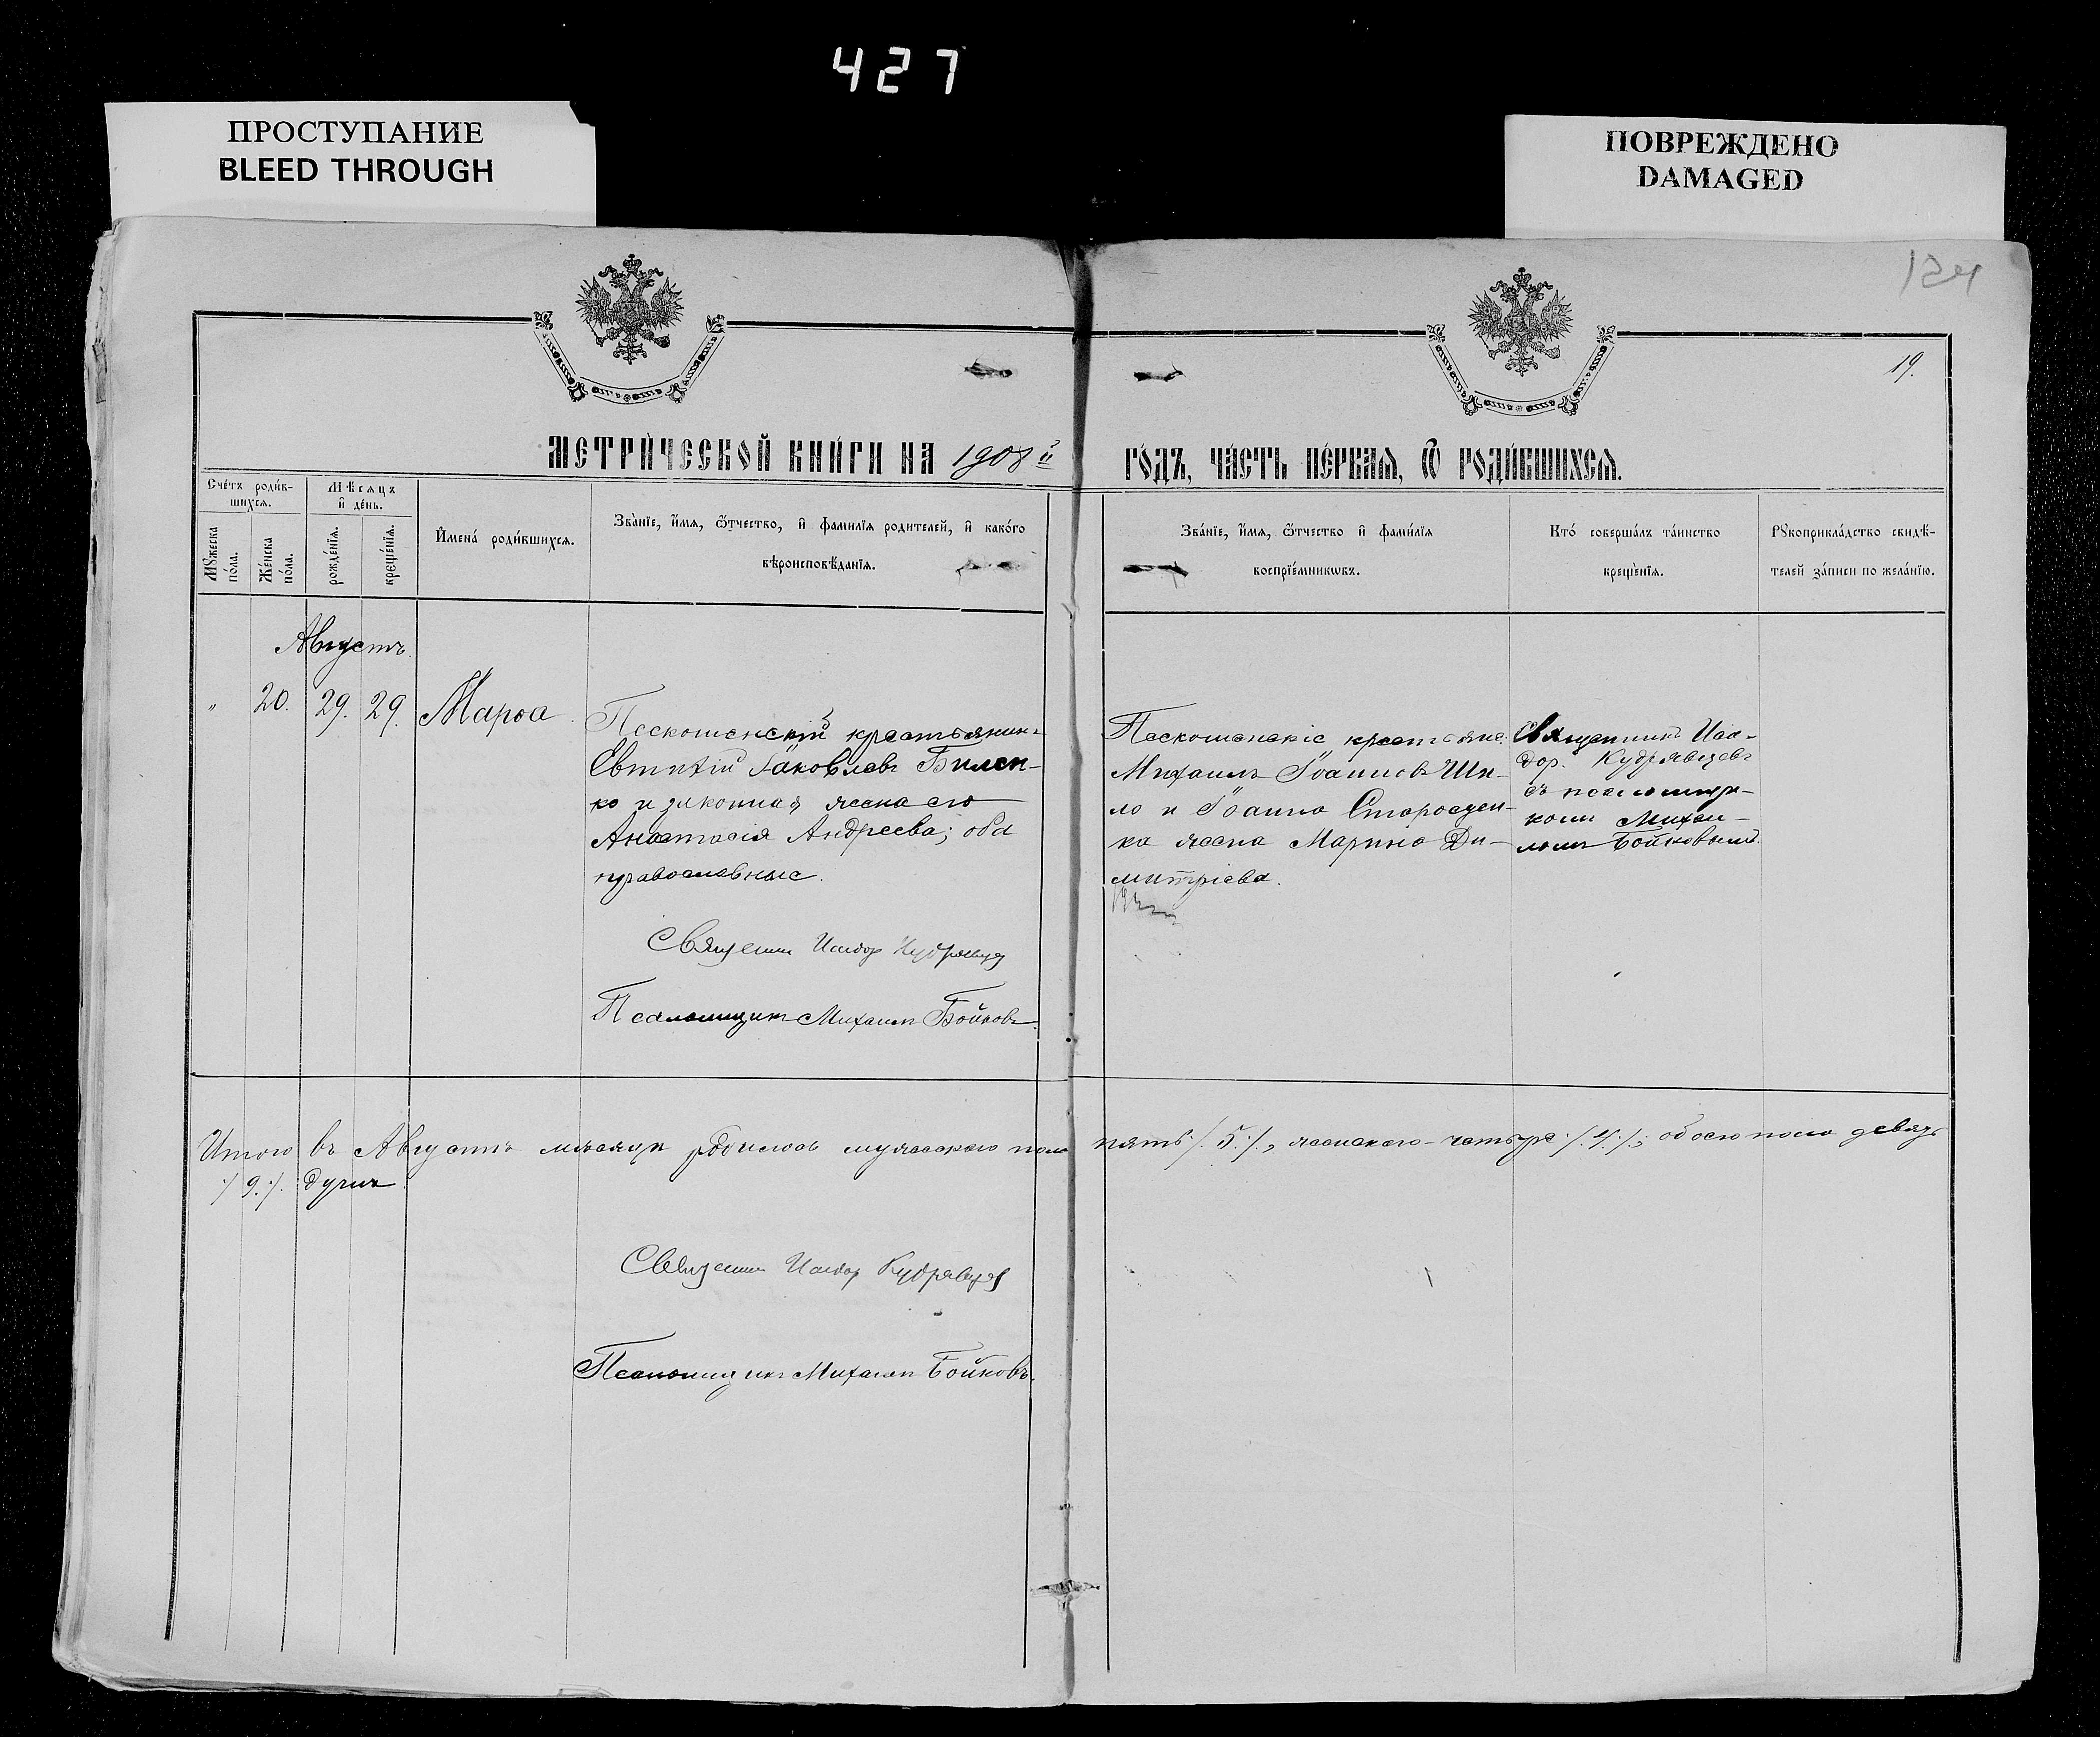 427
ПРОСТУПАНИЕ
BLEED THROUGH
ПОВРЕЖДЕНО
DAMAGED
124
19.
МЕТРИ́ЧЕСКОЙ КНИ́ГИ НА 1908й
ГО́ДЪ, ЧА́СТЬ ПЕ́РВАѦ, Ѿ РОДИ́ВШИХСѦ.
Сче́тъ роди́в-
шихсѧ.
Мꙋжеска по́ла.
Же́нска по́ла.
Мѣ́сѧцъ
и҆ де́нь.
рожде́нїѧ.
креще́нїѧ.
И҆мена̀ роди́вшихсѧ.
Зва́нїе, и҆́мѧ, ѻ҆́тчество, и҆ фамилїѧ родителей, и҆ како́го
вѣроисповѣ́данїѧ.
Зва́нїе, и҆́мѧ, ѻ҆́тчество и҆ фами́лїѧ
воспрїе́мникѡвъ.
Кто́ соверша́лъ та́инство
креще́нїѧ.
Рꙋкоприкла́дство свидѣ́-
телей за́писи по жела́нїю.
Августъ
" 20. 29. 29. Марѳа
Пескошенскій крестьянинъ
Евтихій Іаковлевъ Билен-
ко и законная жена его
Анастасія Андреева; оба
православные.
Священн Исидор Кудрявцев
Псаломщикъ Михаилъ Бойковъ.
Пескошенскіе крестьяне:
Михаилъ Іоанновъ Ши-
ло и Іоанна Старосден-
ка жена Марина Ди-
митріева.
Священникъ Иси-
дор. Кудрявцевъ
съ псаломщи-
комъ Михаи-
ломъ Бойковымъ.
Итого въ Августѣ мѣсяцѣ родилось мужескаго пола пять /. 5. /., женскаго – четыре /. 4. /.; обоего пола девять
/ 9. /. душъ.
Священн Исидор Кудрявцев
Псаломщикъ Михаилъ Бойковъ.